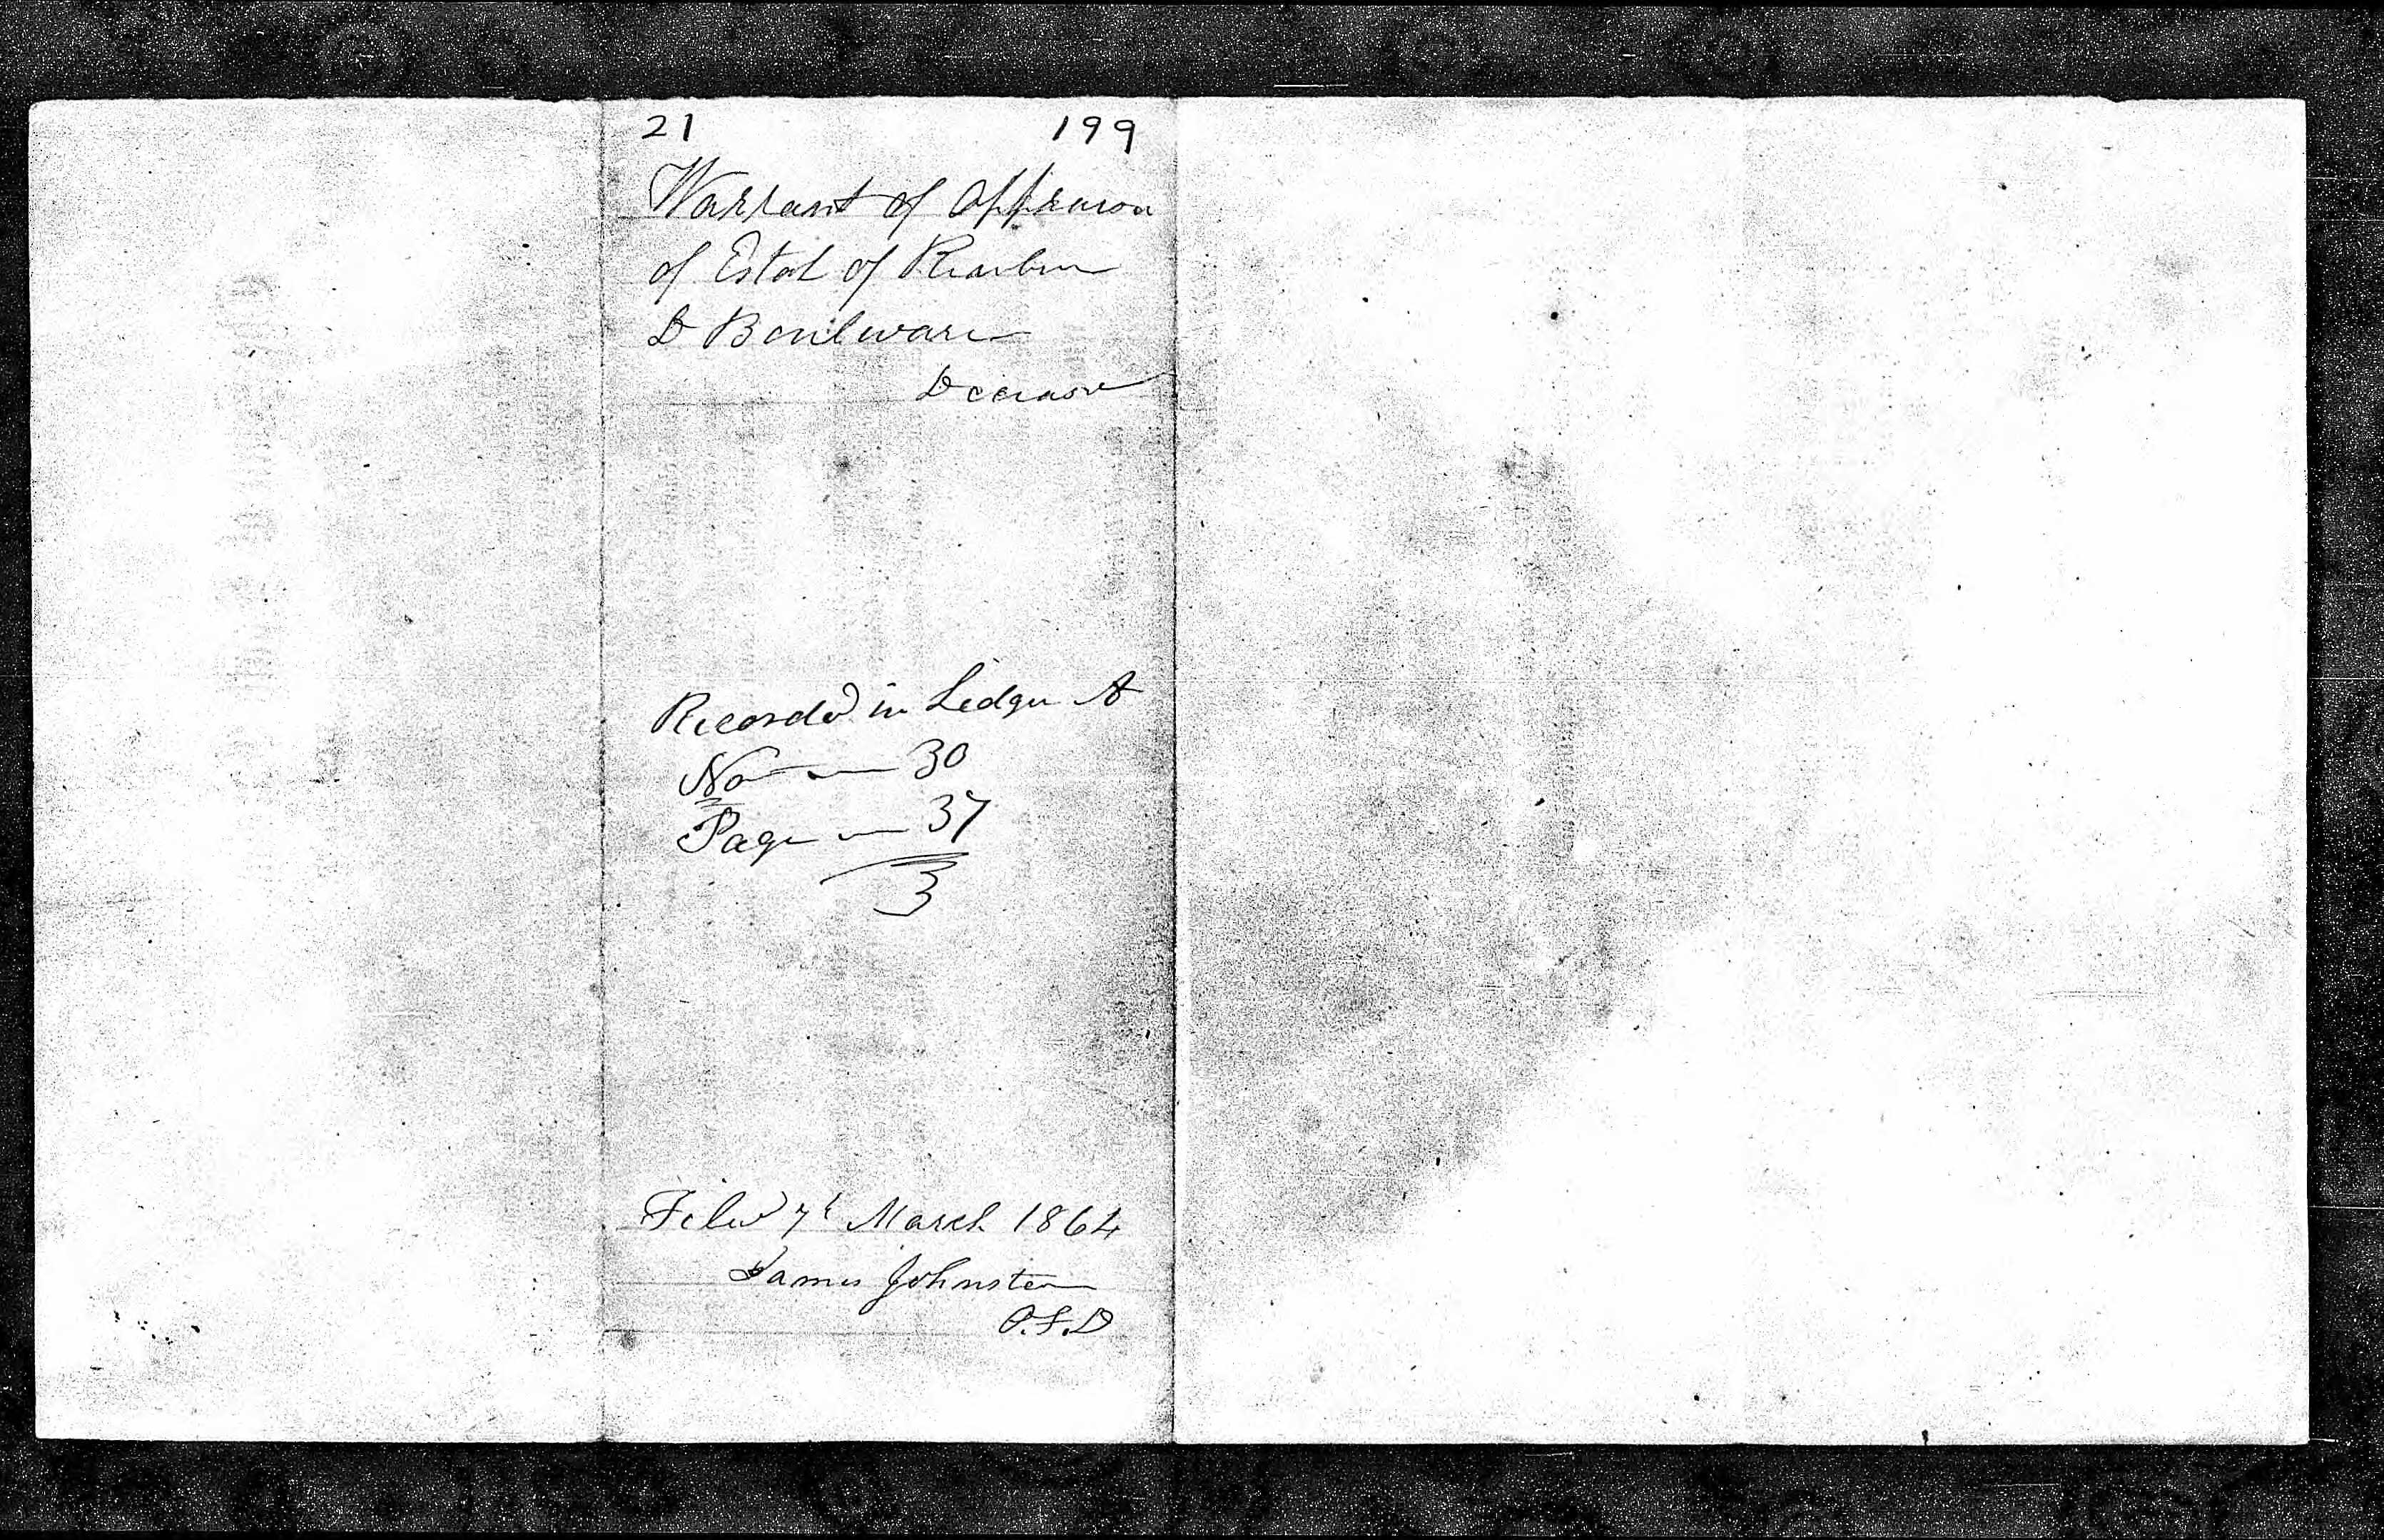 21 199
Warrant of Appraison
of Estat of Reuben
D Boulware
Deceased
Recorded in Ledger A
No 30
Page 37
3
Filed 7t March 1864
James Johnston
O.F.D